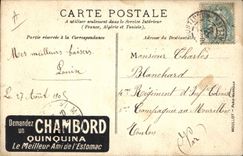 CARTE POSTALE
A utiliser seulement dans le Service Intérieur
(France, Algérie et Tunisie)
Partie réservée à la Correspondance
Adresse du Destinataire
Mes meilleurs baisers
Louise
Le 27 Août 1905
Monsieur Charles
Blanchard
Régiment d'Inf
Compagnie au
Toulon
Demandez
un CHAMBORD
QUINQUINA
Le Meilleur Ami de l'Estomac